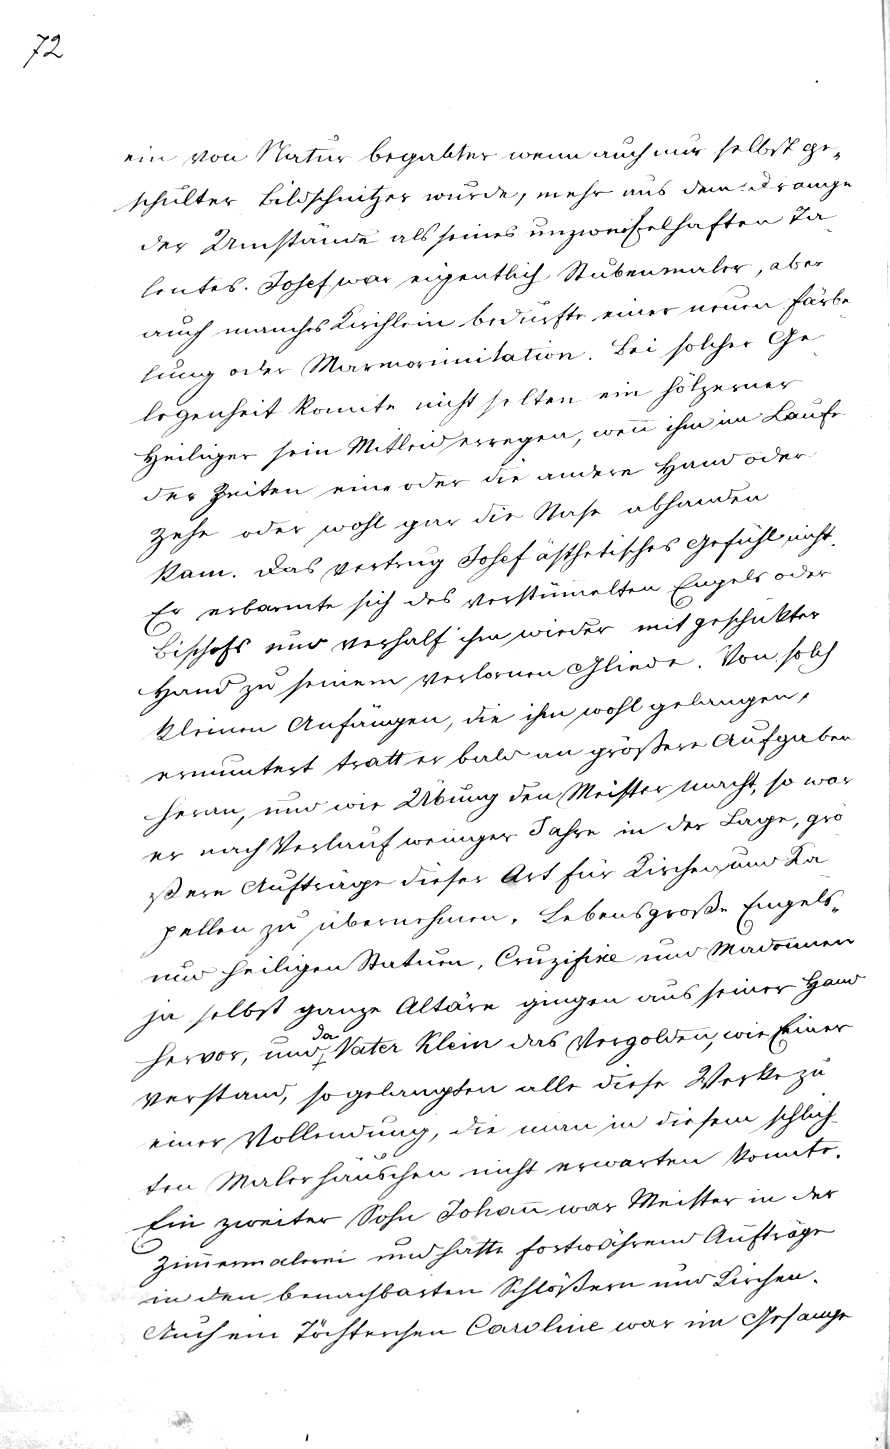 72
ein von Natur begabter wenn auch nur selbst ge„
schulter Bildschnitzer wurde, mehr aus dem Drange
der Umstände als seines unzweifelhaften Ta
lentes. Josef war eigentlich Stubenmaler, aber
auch manches Kirchlein bedurfte einer neuen Färbe
lung oder Marmorimitation. Bei solcher Ge
legenheit konnte nicht selten ein hölzerner
Heiliger sein Mitleid erregen, wen̄ ihm im Laufe
der Zeiten eine oder die andere Hand oder
Zehe oder wohl gar die Nase abhanden
kam. Das vertrug Josef ästhetisches Gefühl nicht.
Er erbarmte sich des verstüm̄elten Engels oder
Bischofs und verhalf ihm wieder mit geschikter
Hand zu seinem verlornen Gliede. Von solch
kleinen Anfängen, die ihm wohl gelangen,
ermuntert tratt er bald an größere Aufgaben
heran, und wie Übung den Meister macht, so war
er nach Verlauf weniger Jahre in der Lage, grö
ßere Aufträge dieser Art für Kirchen und Ka
pellen zu übernehmen. Lebensgroße Engels„
und Heiligen Statuen, Cruzifixe und Madonnen
ja selbst ganze Altäre gingen aus seiner Hand
hervor, und da Vater Klein das Vergolden, wie Einer
verstand, so gelangten alle diese Werke zu
einer Vollendung, die man in diesem schlich
ten Malerhäuschen nicht erwarten konnte.
Ein zweiter Sohn Johan̄ war Meister in der
Zim̄ermalerei und hatte fortwährend Aufträge
in den benachbarten Schlößern und Kirchen.
Auch ein Töchterchen Caroline war im Gesange